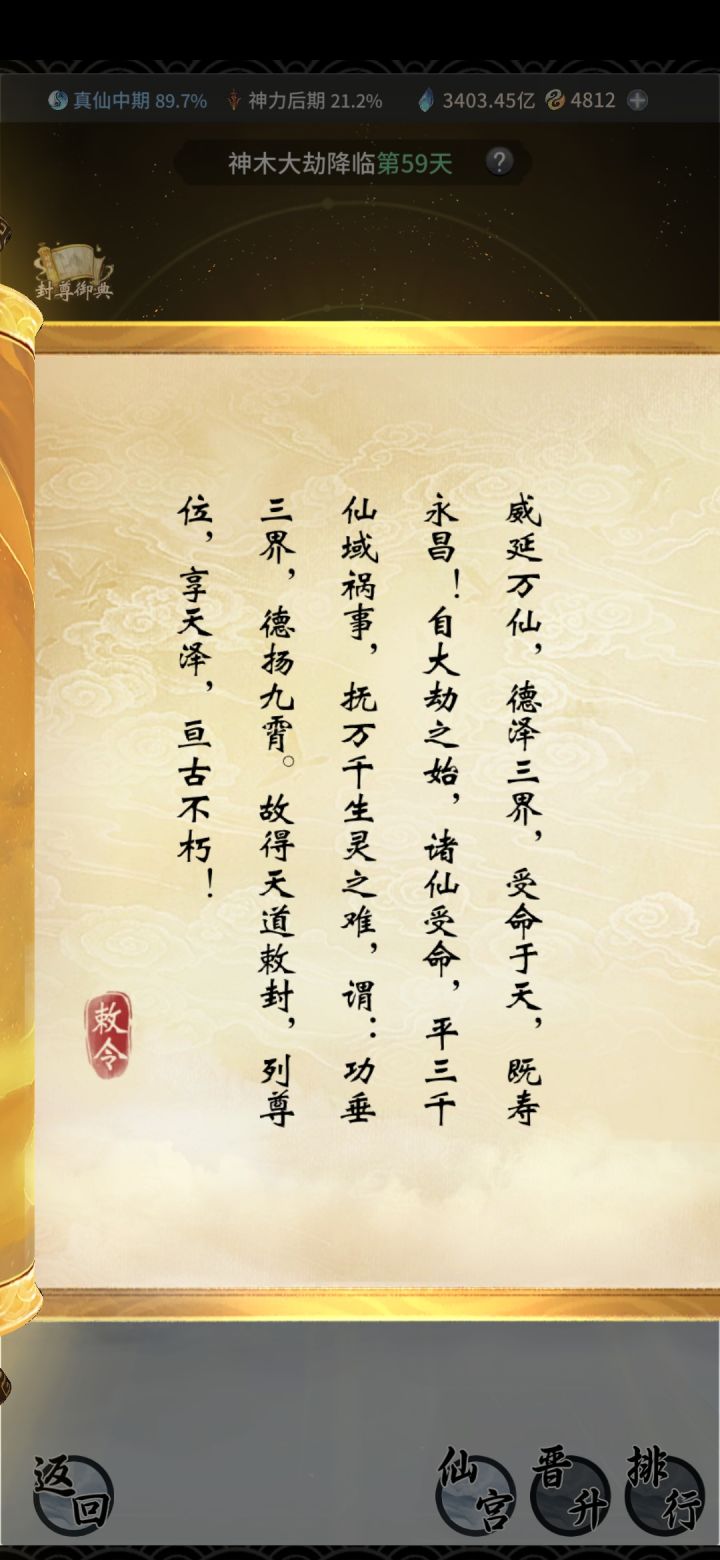 真仙中期 89.7% 神力后期 21.2% 3403.45亿 4812
神木大劫降临第59天 ?
封尊御典
威延万仙，德泽三界，受命于天，既寿
永昌！自大劫之始，诸仙受命，平三千
仙域祸事，抚万千生灵之难，谓：功垂
三界，德扬九霄。故得天道敕封，列尊
位，享天泽，亘古不朽！
敕令
返回
仙宫
晋升
排行